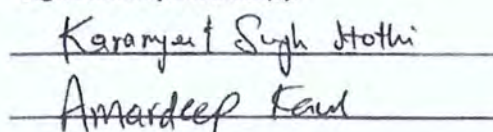 Karamjeet Singh Hothi
Amardeep Kaur